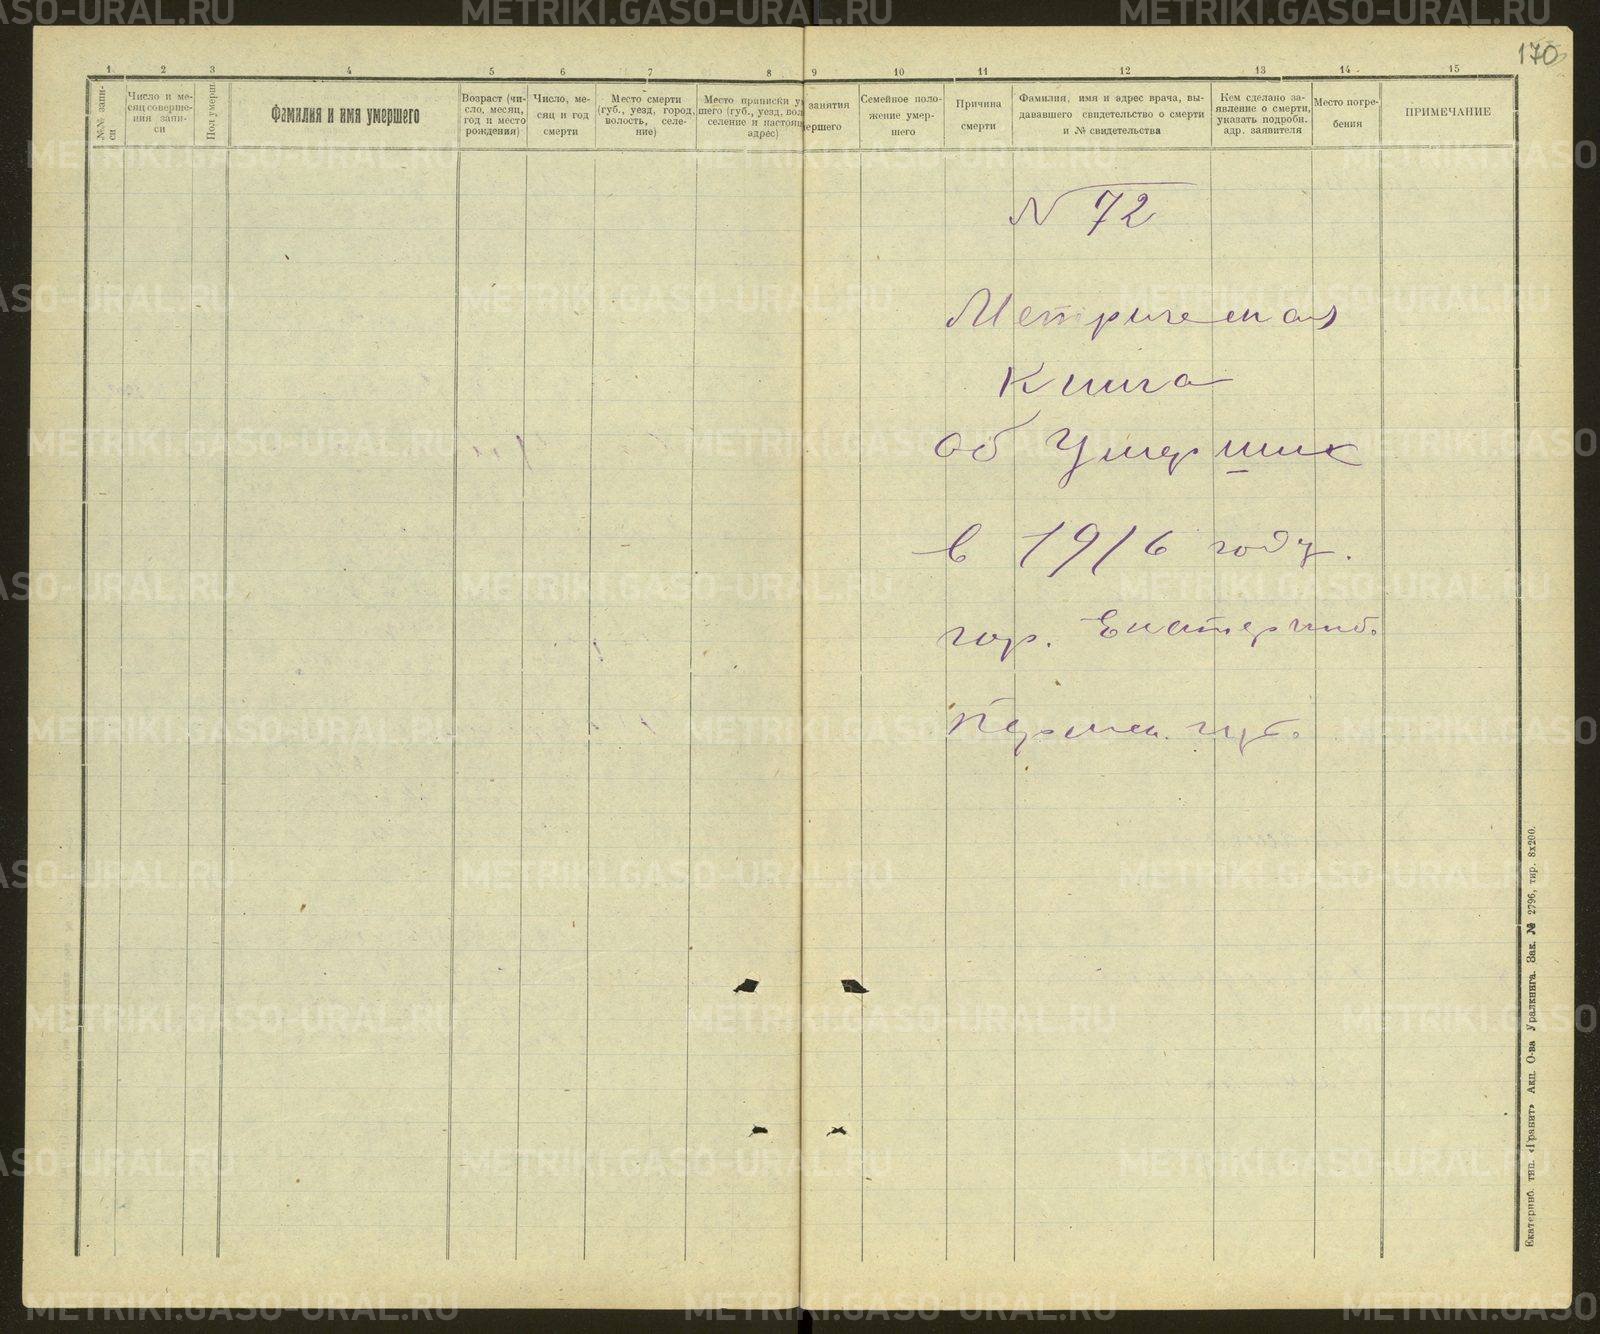 170
1 2 3 4 5 6 7 8 9 10 11 12 13 14 15
№№ запи-
си
Число и ме-
сяц соверше-
ния запи-
си
Пол умерш
Фамилия и имя умершего
Возраст (чи-
сло, месяц,
год и место
рождения)
Число, ме-
сяц и год
смерти
Место смерти
(губ., уезд, город,
волость, селе-
ние)
Место приписки у
шего (губ., уезд, вол
селение и настоящ
адрес)
занятия
мершего
Семейное поло-
жение умер-
шего
Причина
смерти
Фамилия, имя и адрес врача, вы-
дававшего свидетельство о смерти
и № свидетельства
Кем сделано за-
явление о смерти,
указать подробн.
адр. заявителя
Место погре-
бения
ПРИМЕЧАНИЕ
N 72
Метрическая
Книга
Об Умерших
в 1916 году.
гор. Екатеринб.
Пермск. губ.
Екатеринб. тип. «Гранит» Акц. О-ва Уралкнига. Зак. № 2796, тир. 8х200.
METRIKI.GASO-URAL.RU